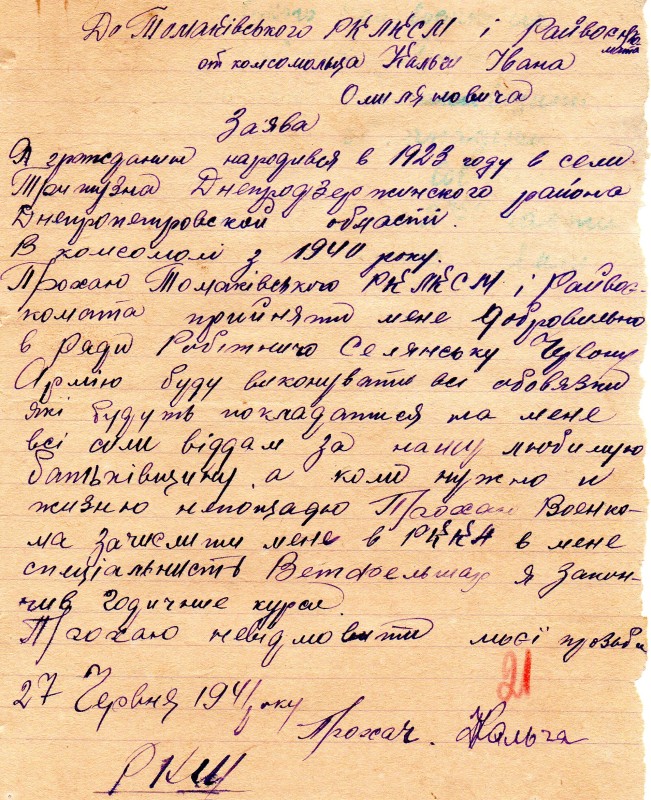 До Томаківського РКЛКСМ і Райвоєнкомата
от комсомольца Кальги Івана
Омиляновича
Заява
Я гражданин народився в 1923 году в сели
Тритузна Днепродзержинского района
Днепропетровской області.
В комсомолі з 1940 року.
Прохаю Томаківського РКЛКСМ і Райвоє-
комата прийняти мене добровильно
в ряди Робітничо Селянську Чувону
Армію буду виконувать всі обовязки
які будуть покладатися на мене
всі сили віддам за нашу любимую
батьківщину, а коли нужно и
жизню непощадю Прохаю Военко-
ма зачислити мене в РККА в мене
специальнисть Ветфельшар я закон-
чив годичние курси.
Прохаю невідмовити моєї прозьби
27 Червня 1941 року
21
Прохач. Кальга
РКШ